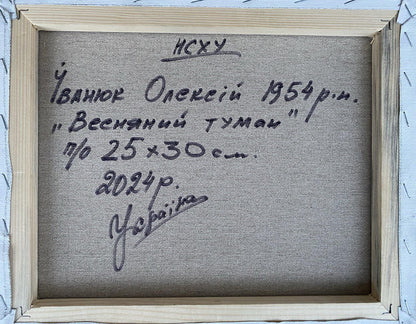 НСХУ
Іванюк Олексій 1954 р.н.
„Весняний туман"
п/о 25×30 см.
2024р.
Україна